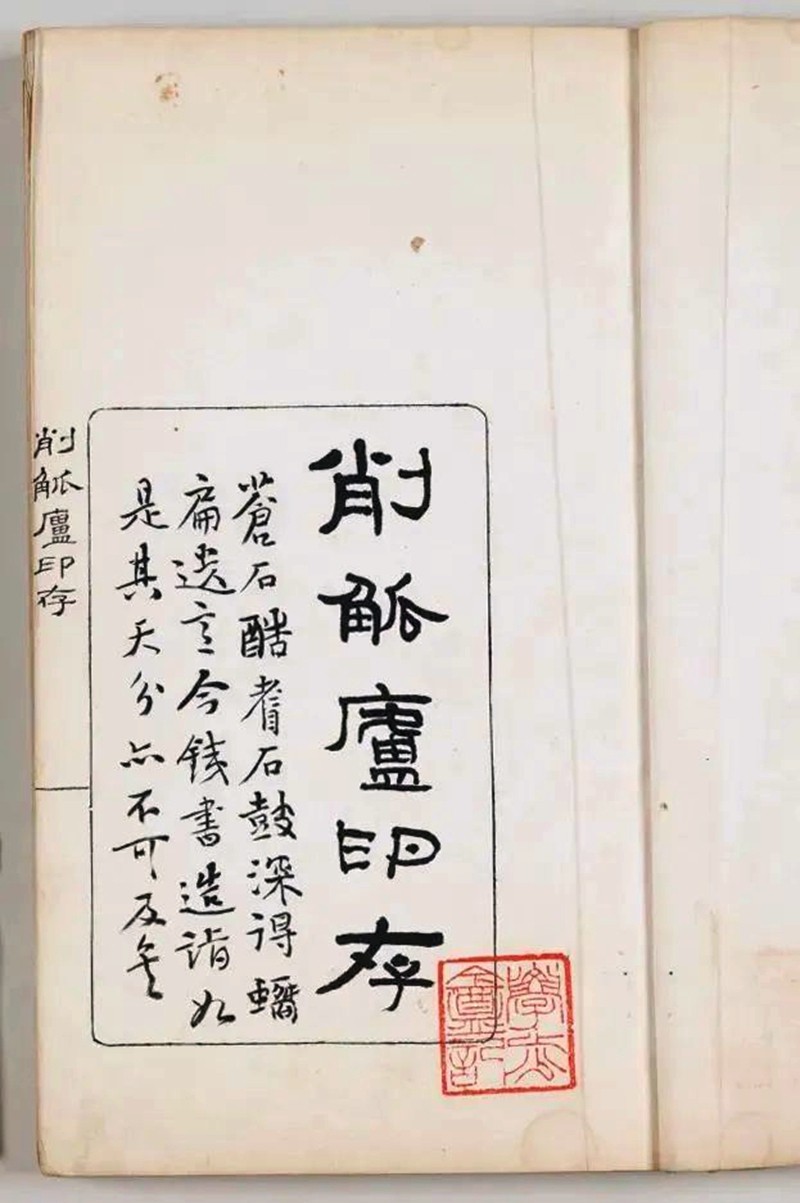 削觚廬印存
蒼石酷耆石鼓深得
扁遺意今銕書造詣如
是其天分亦不可及矣
削觚廬印存